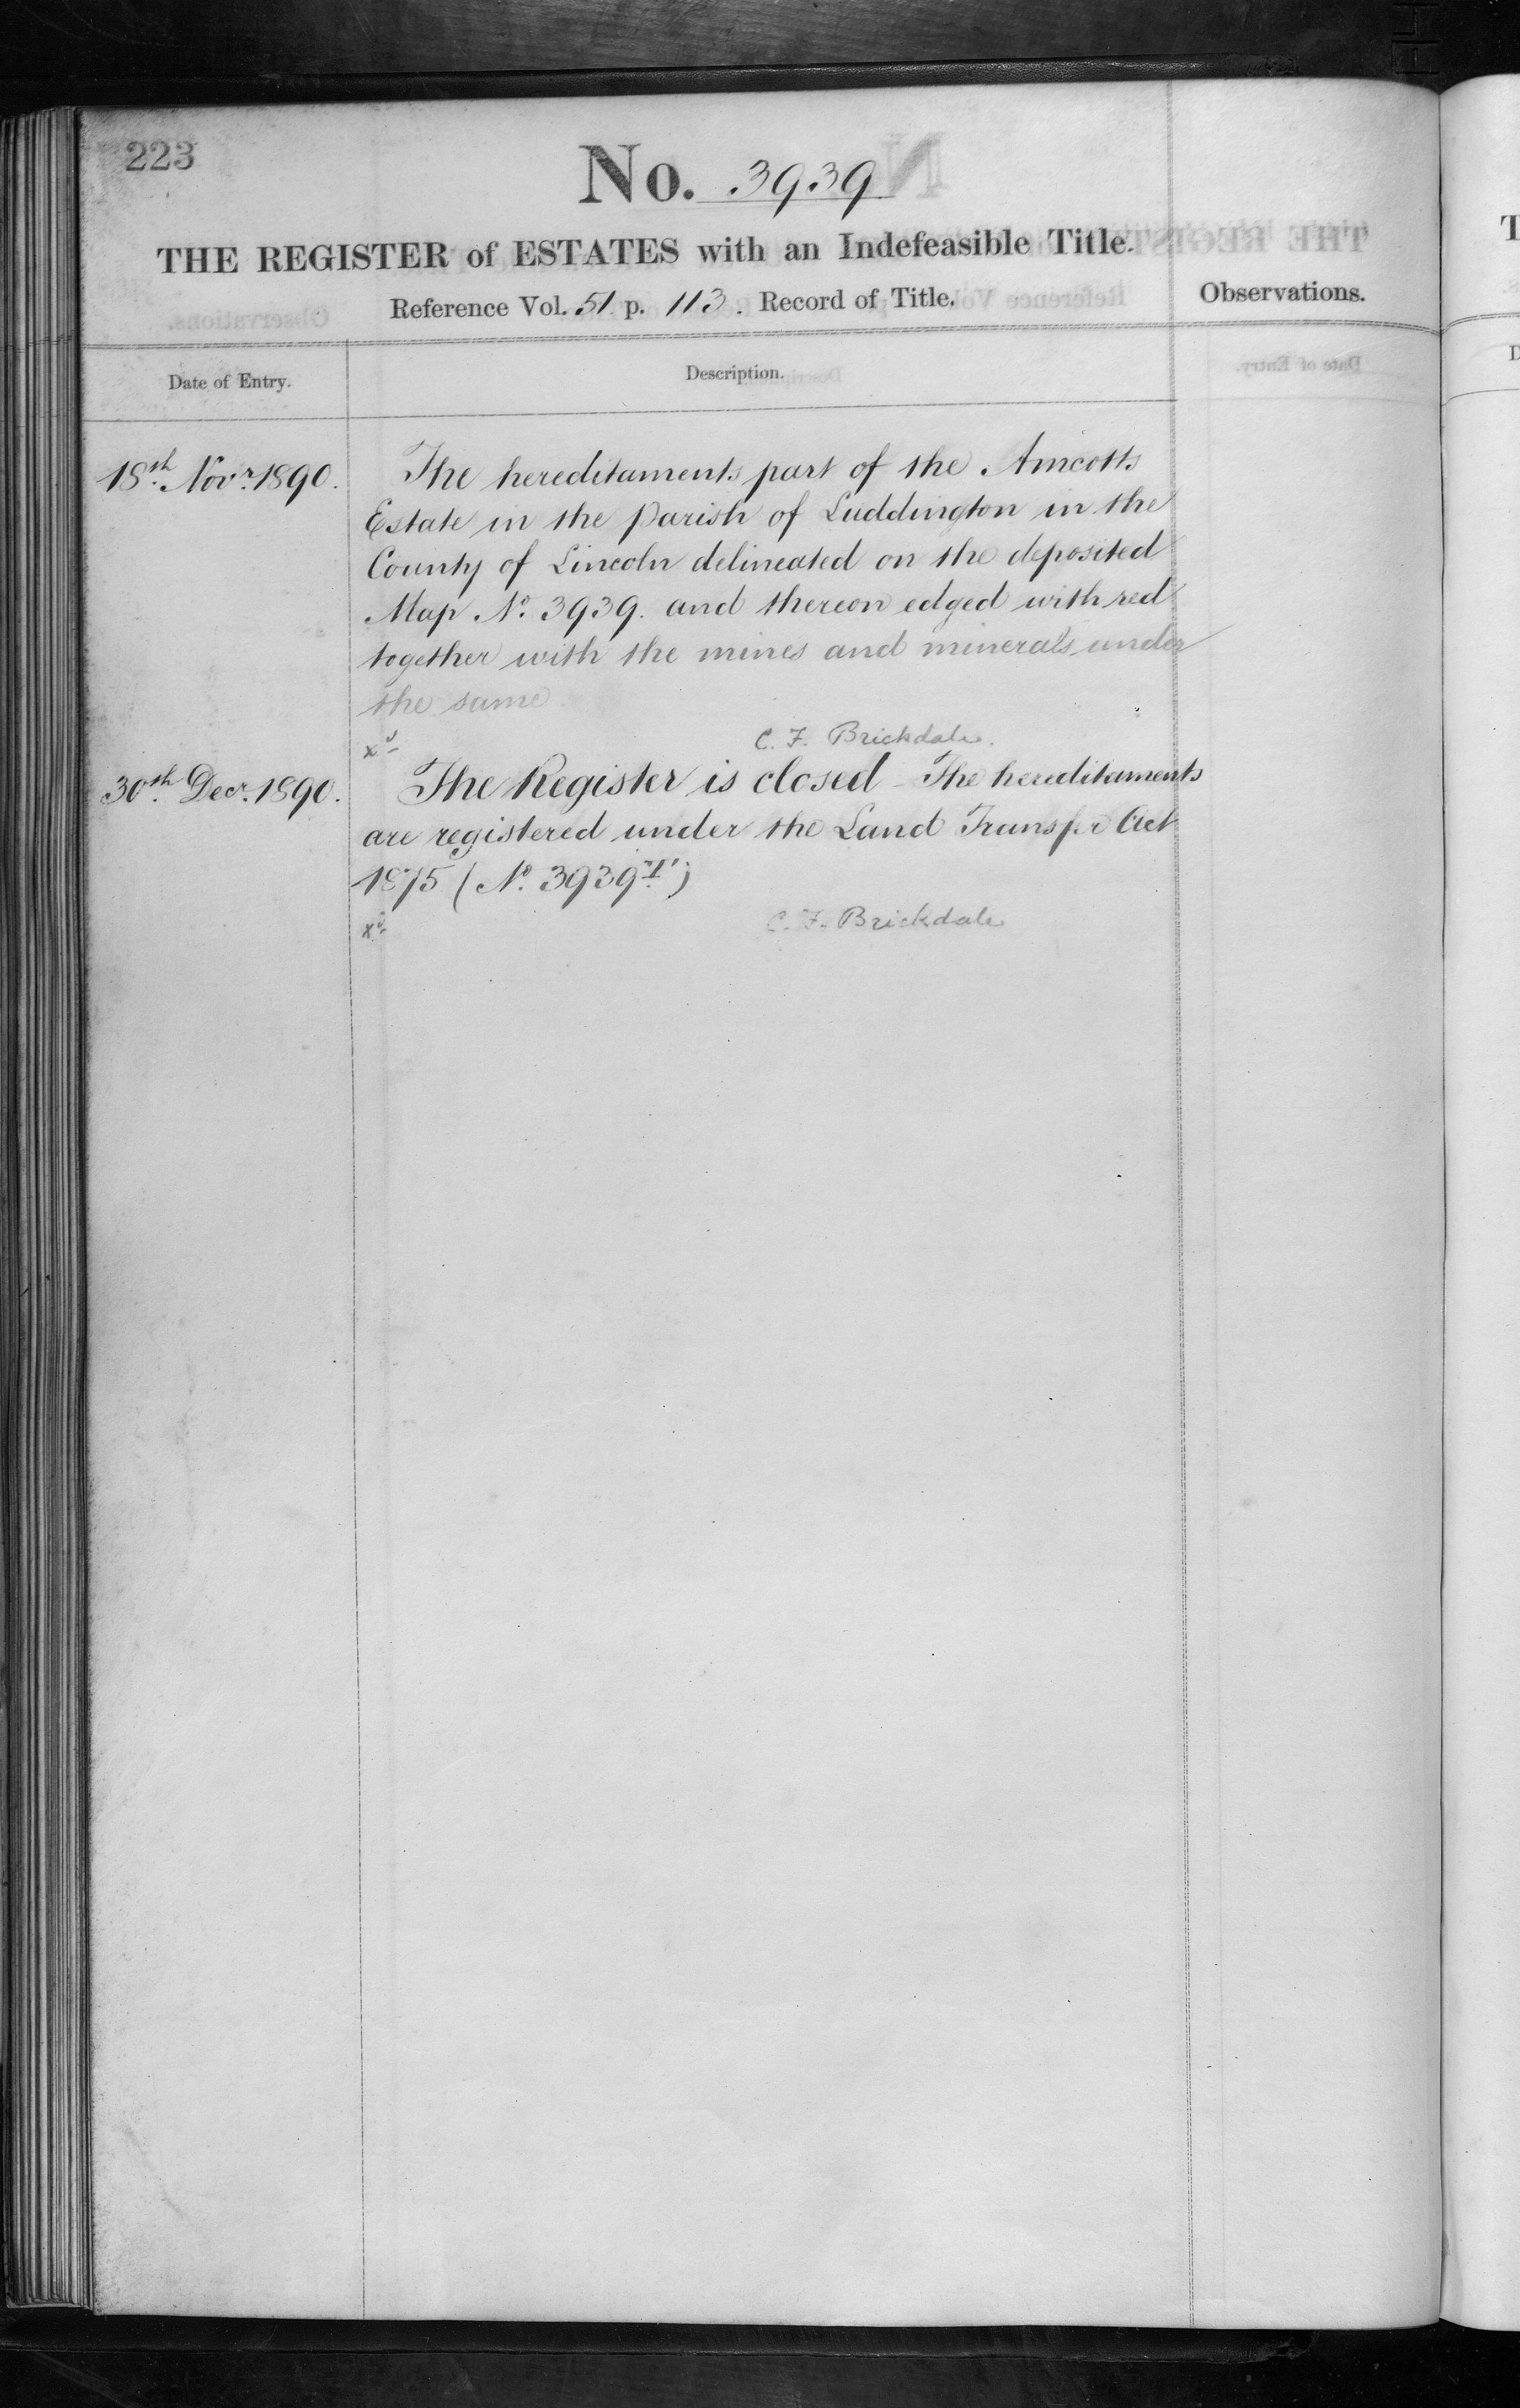 223
No. 3939
THE REGISTER of ESTATES with an Indefeasible Title.
Reference Vol. 51 p. 113. Record of Title.
Observations.
Date of Entry.
Description.
18th Novr. 1890.
The hereditaments part of the Amcotts
Estate in the Parish of Luddington in the
County of Lincoln delineated on the deposited
Map No. 3939. and thereon edged with red
together with the mines and minerals under
the same
xd
C. F. Brickdale.
30th Decr. 1890.
The Register is closed - The hereditaments
are registered under the Land Transfer Act
1875 (No. 3939 "I")
xd
C. F. Brickdale